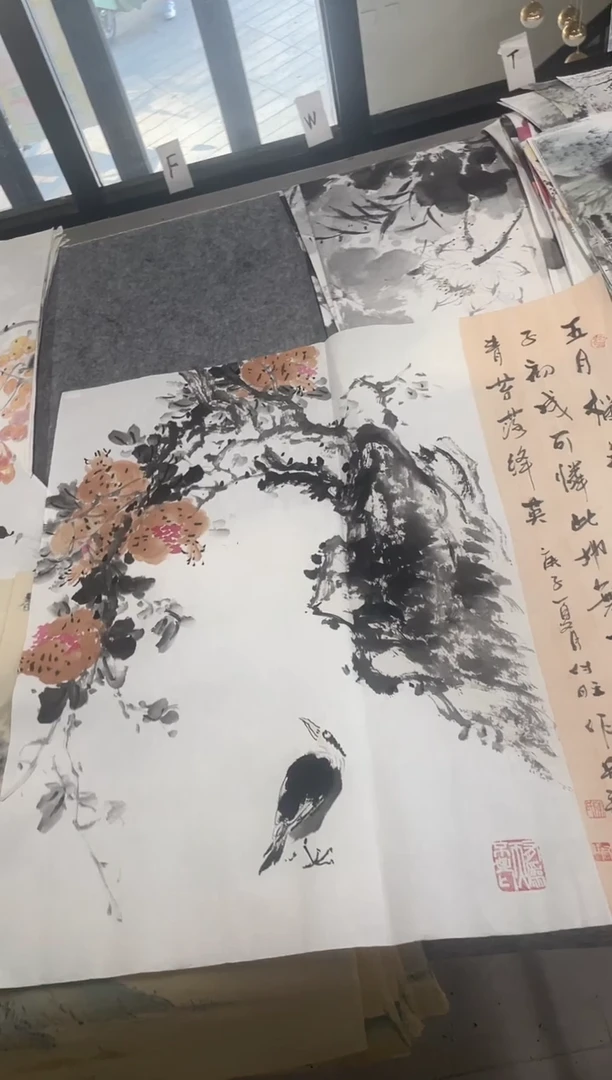 F
W
T
五月榴
子初成可憐此地無
青苔落绛英
庚子夏月
作